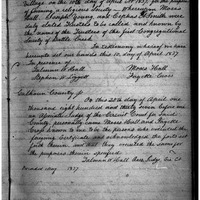 Village on the 10th day of April 1837, for the purpose
of forming Religious Society — Whereupon Moses
Hall, Joseph Young, and Stephen N. Smith were
duly elected Trustees to be called, and known by
the name of the Trustees of the first Congregational
Society of Battle Creek.
In testimony whereof we have
hereunto set our hands this 10 day of April 1837.
In presence of
Tolman W. Hall    Moses Hall
Stephen N.
Calhoun County ss.
On this 20th day of April one
thousand eight hundred and thirty seven before me
an Associate Judge of the Circuit Court for said
County, personally came Moses Hall and
known to me to be the persons who executed the
foregoing Certificate and acknowledged the facts set
forth therein and that they executed the same for
the purposes therein specified.
Tolman W. Hall Asso. Judge
1837